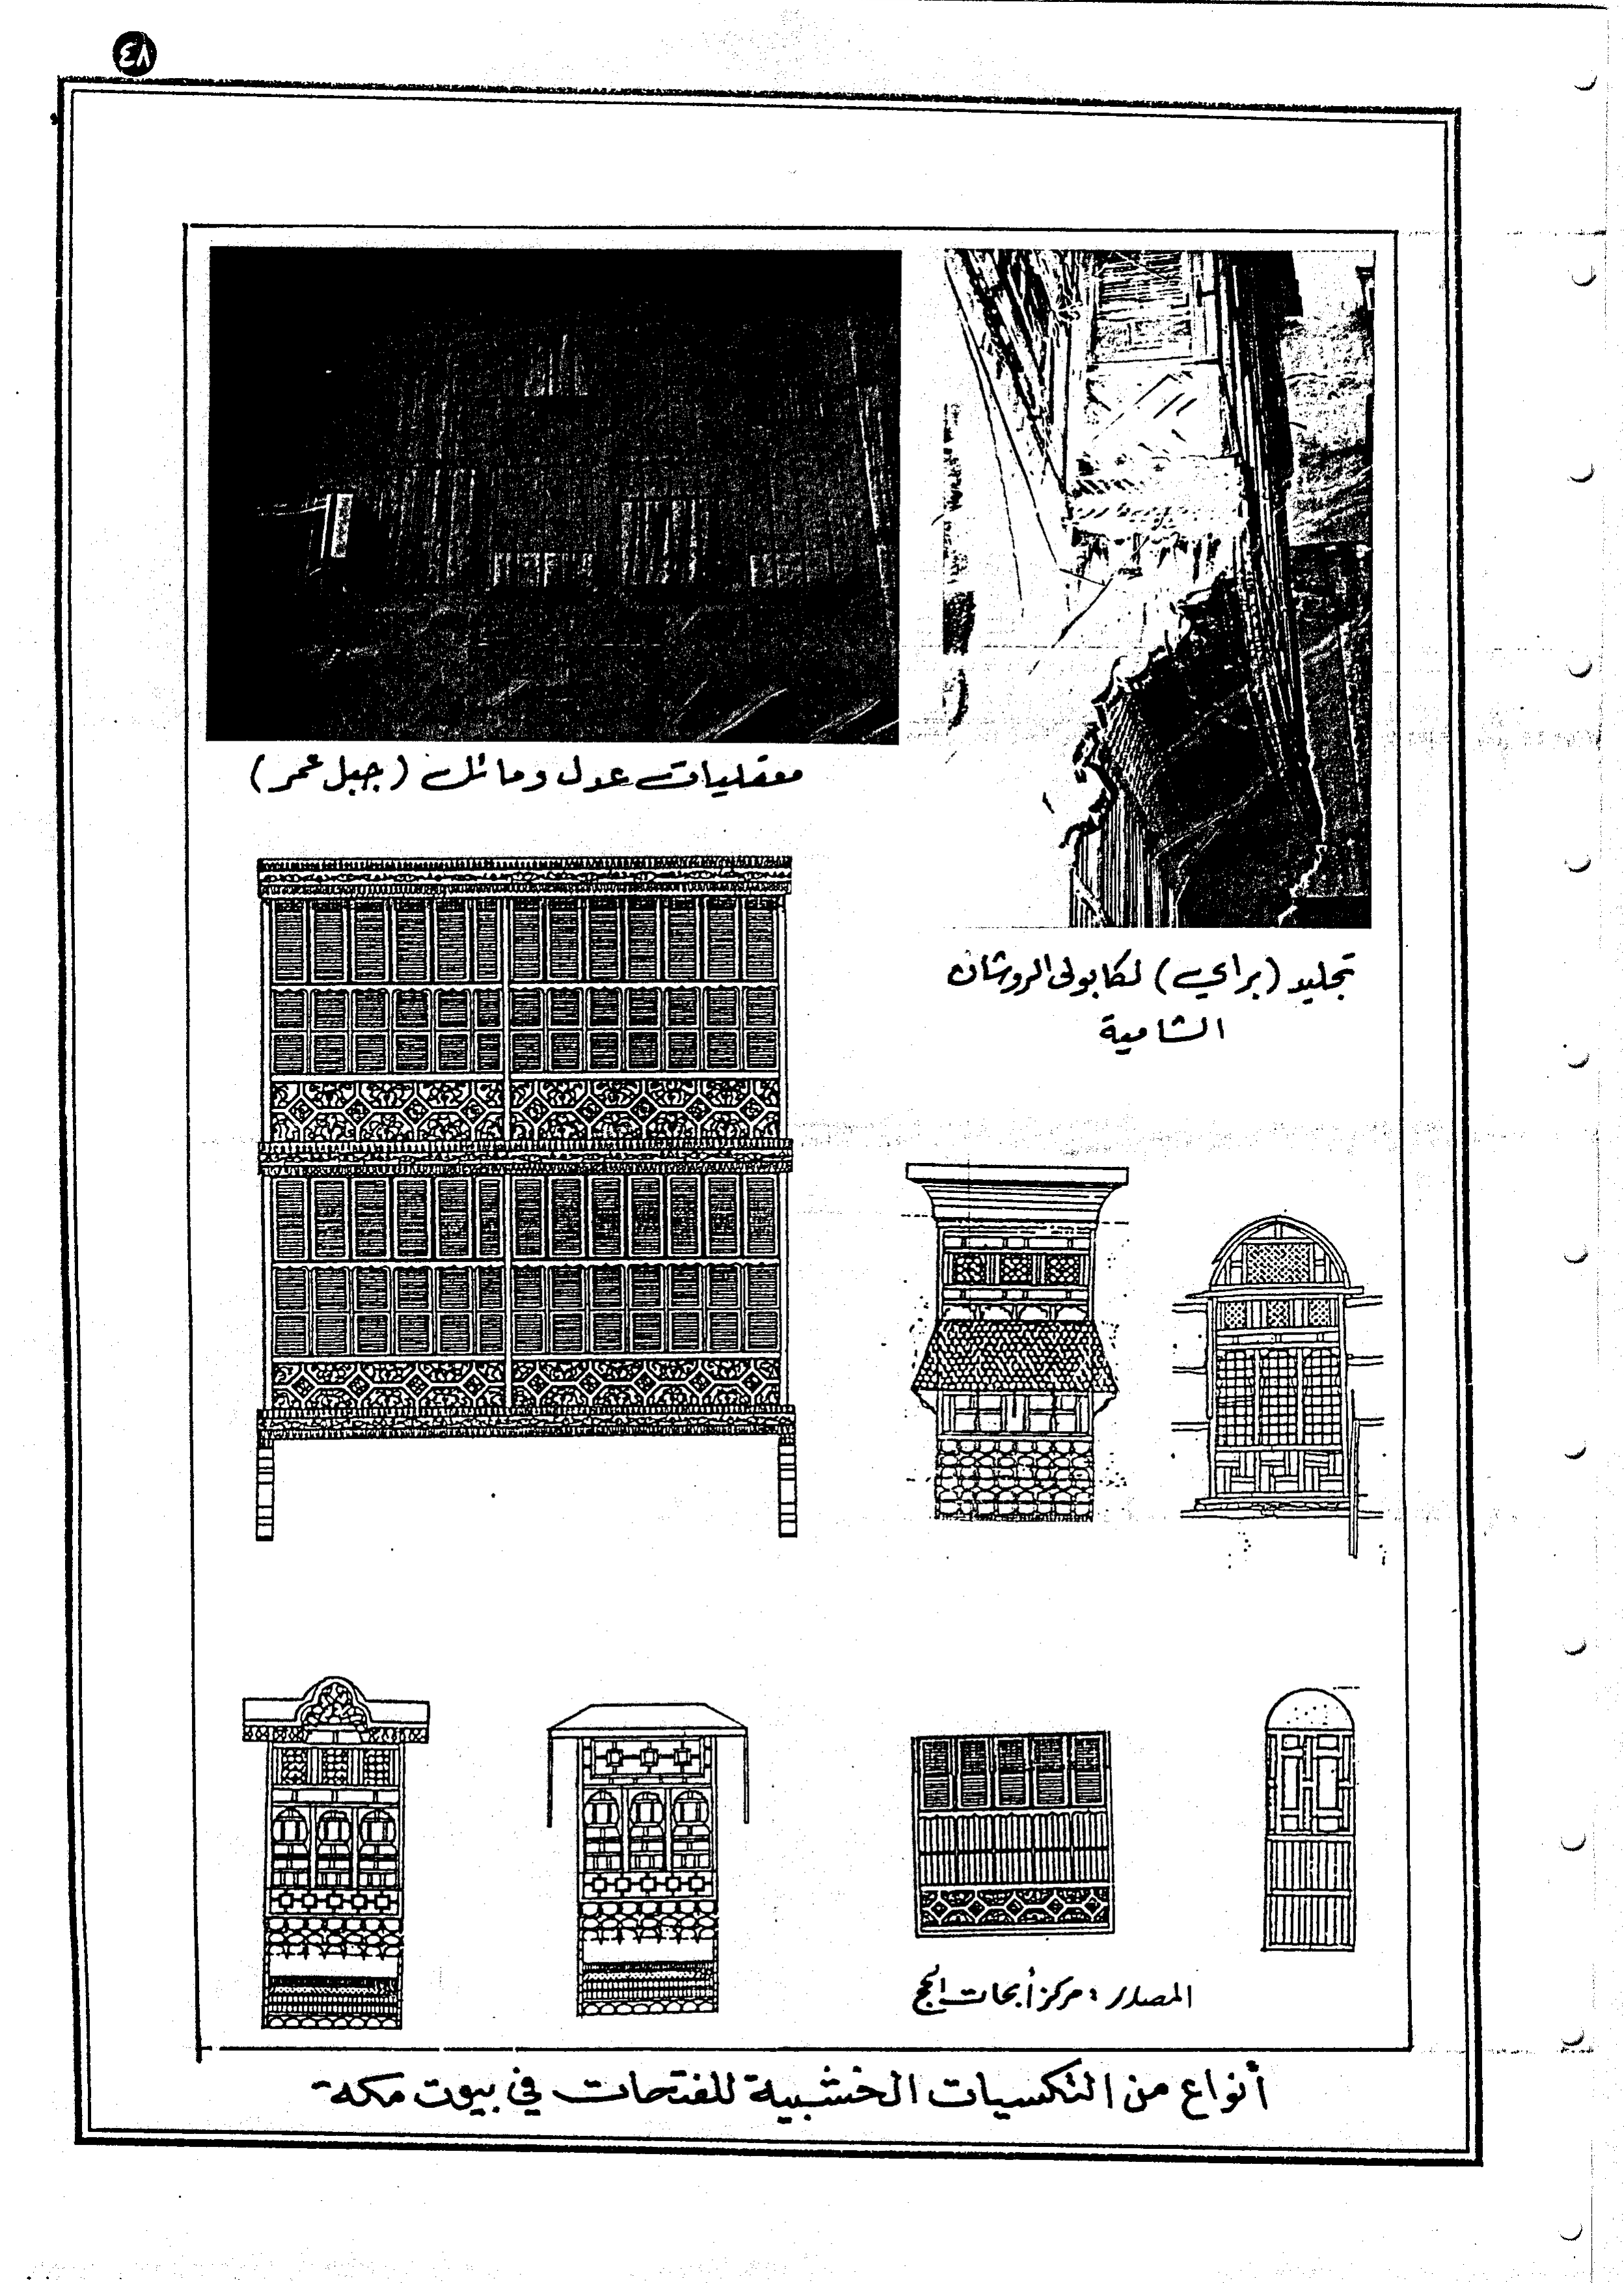 ٤٨
معقليات عدل ومائل (جبل عمر)
تجليد (براي) لكابولى الروشان
الشامية
المصدر : مركز أبحاث الحج
أنواع من التكسيات الخشبية للفتحات في بيوت مكة